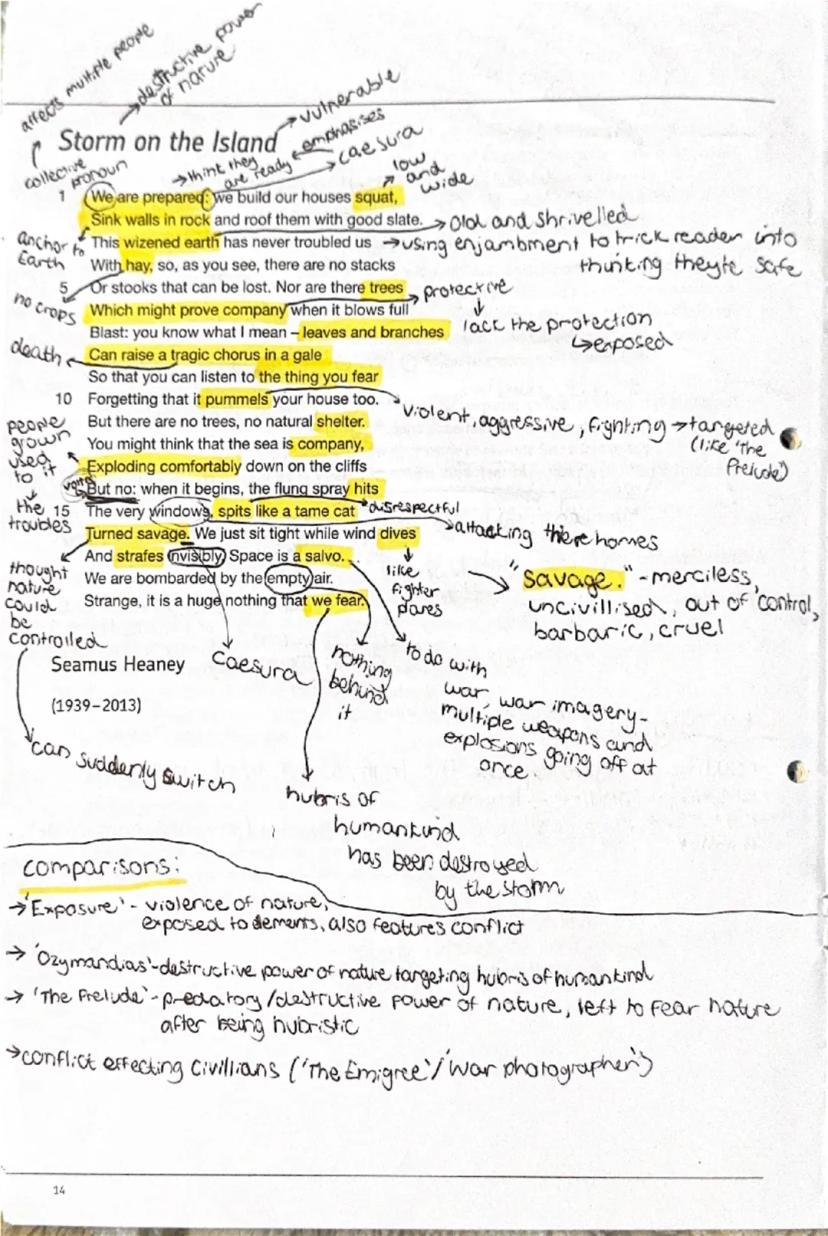 affects multiple people
→destructive power
of nature
Storm on the Island
→vulnerable
emphasises
caesura
→think they
are ready
low
and
wide
collective
pronoun
1 We are prepared: we build our houses squat,
Sink walls in rock and roof them with good slate.
→Old and shrivelled
anchor to
Earth
This wizened earth has never troubled us
→using enjambment to trick reader into
thinking theyte safe
With hay, so, as you see, there are no stacks
5 Or stooks that can be lost. Nor are there trees
no crops
protective
Which might prove company when it blows full
Blast: you know what I mean – leaves and branches
lack the protection
↳exposed
death
Can raise a tragic chorus in a gale
So that you can listen to the thing you fear
10 Forgetting that it pummels your house too.
violent, aggressive, fighting →targeted
(like 'The
Prelude')
But there are no trees, no natural shelter.
You might think that the sea is company,
people
grown
used
to it
Exploding comfortably down on the cliffs
volta
But no: when it begins, the flung spray hits
the
troubles
15 The very windows, spits like a tame cat
disrespectful
→attacking there homes
Turned savage. We just sit tight while wind dives
And strafes invisibly. Space is a salvo.
like
fighter
planes
We are bombarded by the empty air.
Strange, it is a huge nothing that we fear.
"savage." - merciless,
uncivilised, out of control,
barbaric, cruel
thought
nature
could
be
controlled
can suddenly switch
Seamus Heaney
(1939–2013)
caesura
nothing
behind
it
to do with
war, war imagery-
multiple weapons and
explosions going off at
once
hubris of
humankind
has been destroyed
by the storm
comparisons:
→'Exposure' - violence of nature,
exposed to elements, also features conflict
→ 'Ozymandias'-destructive power of nature targeting hubris of humankind
→ 'The Prelude'- predatory/destructive power of nature, left to fear nature
after being hubristic
→conflict effecting civillians ('The Emigree'/'War photographer')
14